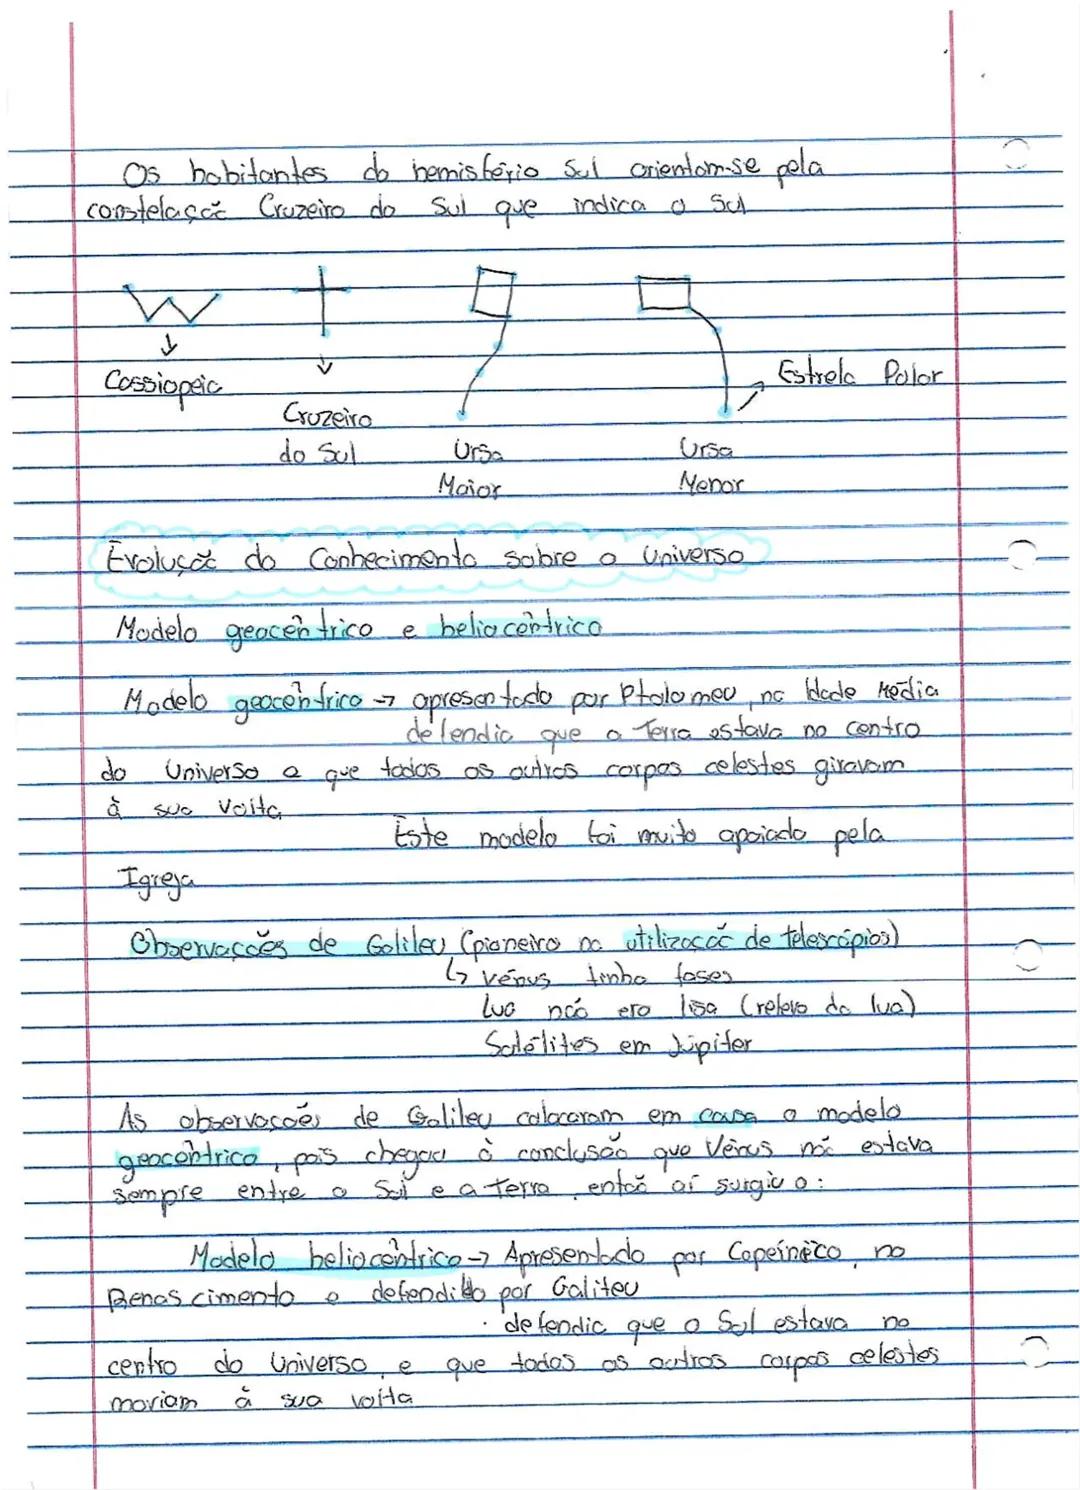 Os habitantes do hemisfério Sul orientam-se pela
constelação Cruzeiro do Sul que indica o Sul
Cassiopeia
Estrela Polar
Cruzeiro
do Sul
Ursa
Maior
Ursa
Menor
Evolução do Conhecimento sobre o Universo
Modelo geocêntrico e heliocêntrico
Modelo geocêntrico → apresentado por Ptolomeu, na Idade Média
defendia que a Terra estava no centro
do Universo e que todos os outros corpos celestes giravam
à sua volta
Este modelo foi muito apoiado pela
Igreja
Observações de Galileu (pioneiro na utilização de telescópios)
↳ Vénus tinha fases
Lua não era lisa (relevo da lua)
Satélites em Júpiter
As observações de Galileu colocaram em causa o modelo
geocêntrico, pois chegou à conclusão que Vénus não estava
sempre entre o Sol e a Terra, então aí surgiu o:
Modelo heliocêntrico → Apresentado por Copérnico, no
Renascimento e defendido por Galileu
· defendia que o Sol estava no
centro do Universo, e que todos os outros corpos celestes
moviam à sua volta